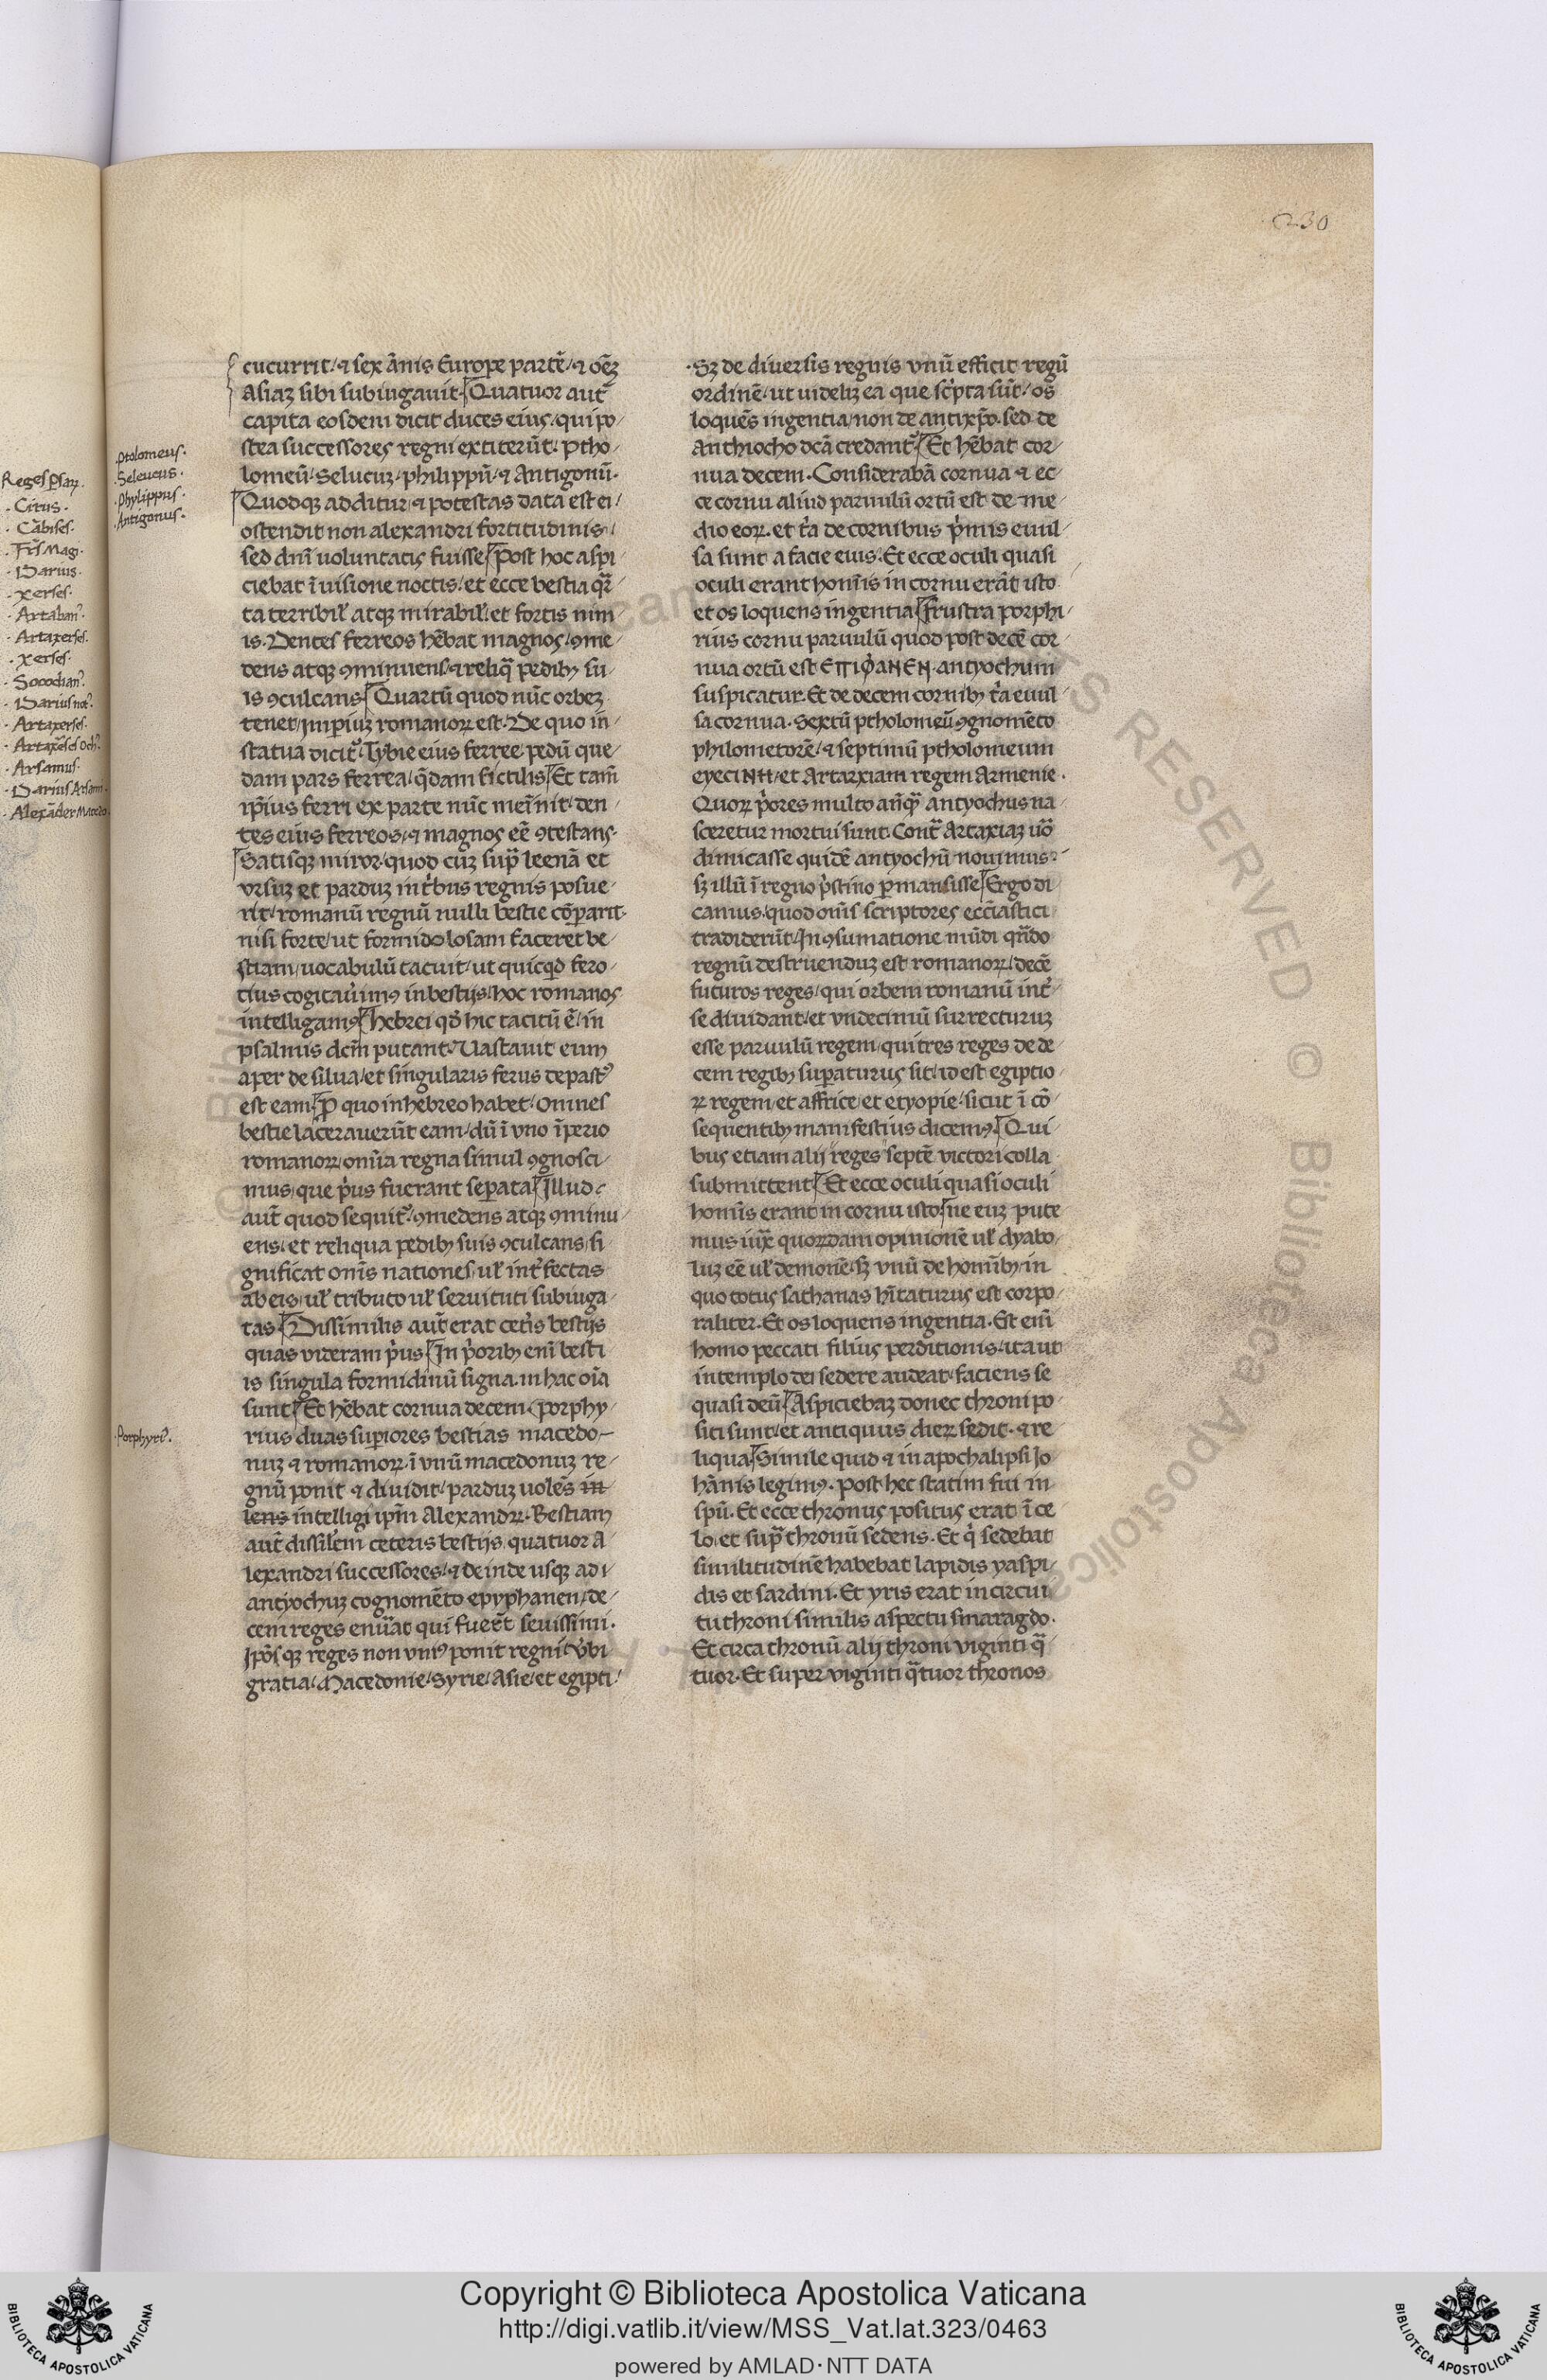 230
Reges ꝑsaꝝ.
· Cirus ·
· Cābises ·
· Frs̄ Magi ·
· Darius ·
· Xerses ·
· Artabanꝰ ·
· Artaxerses ·
· Xerses ·
· Socodianꝰ ·
· Darius notꝰ ·
· Artaxerses ·
· Artaxs̄es Ochꝰ ·
· Arsamus ·
· Darius Arsami ·
· Alexāder Macedo ·
.Ptolomeus.
.Seleucus.
.Phylippus.
.Antigonus.
.Porphyriꝰ.
cucurrit / ⁊ sex ānis Europe partē / ⁊ oēꝫ
Asiaꝫ sibi subiugauit. Quatuor aut̄
capita eosdem dicit duces eius / qui po
stea successores regni extiterūt. Ptho
lomeū / Selucuꝫ / philippū / ⁊ Antigonū.
Quodqꝫ additur / ⁊ potestas data est ei /
ostendit non alexandri fortitudinis /
sed dnī uoluntatis fuisse Post hoc aspi
ciebat ī uisione noctis / et ecce bestia qr̄
ta terribil̛ atqꝫ mirabil̛ / et fortis nim
is. Dentes ferreos hēbat magnos / ꝯme
dens atqꝫ ꝯminuens / ⁊ reliq̄ pedibꝫ su
is ꝯculcans Quartū quod nūc orbeꝫ
tenet / Imperiuꝫ romanoꝝ est. De quo in
statua dicit᷑. Tybie eius ferree pedū que
dam pars ferrea / q̄dam fictilis Et tam̄
ip̄ius ferri ex parte nūc mem̄it / den
tes eius ferreos / ⁊ magnos eē ꝯtestans.
Satisqꝫ miror / quod cuꝫ supͣ leenā et
vrsuꝫ et parduꝫ in tͥbus regnis posue
rit / romanū regnū nulli bestie cōparit.
nisi forte / ut formidolosam faceret be
stiam / uocabulū tacuit / ut quicqͥd fero
tius cogitauͥimꝰ in bestijs / hoc romanos
intelligamꝰ Hebrei qd̛ hic tacitū ē / in
psalmis dcm̄ putant. Vastauit eum
aper de silua / et singularis ferus depastꝰ
est eam Pro quo in hebreo habet. Omnes
bestie lacerauerūt eam / dū ī vno īperio
romanoꝝ / omīa regna simul ꝯgnosci
mus / que pͥus fuerant seꝑata Illud
aut̄ quod sequit᷑. ꝯmedens atqꝫ ꝯminu
ens / et reliqua pedibꝫ suis ꝯculcans / si
gnificat omīs nationes / ul̛ int̛fectas
ab eis / ul̛ tributo ul̛ seruituti subiuga
tas Dissimilis aut̄ erat cet̛is bestijs
quas videram pͥus In pͥoribꝫ enī besti
is singula formidinū signa / in hac oīa
sunt Et hēbat cornua decem Porphy
rius duas suꝑiores bestias macedo
nuꝫ ⁊ romanoꝝ / ī vnū macedonuꝫ re
gnū ponit ⁊ diuidit / parduꝫ uolēs in
lens intelligi ip̄m Alexandꝝ. Bestiam
aut̄ dissil̛em ceteris bestijs quatuor A
lexandri successores / ⁊ deinde usqꝫ ad i
antyochuꝫ cognomēto epyphanen / de
cem reges enūat qui fuer̄t seuissimi.
Ip̄os qꝫ reges non vniꝰ ponit regni / v̛bi
gratia / Macedonie / Syrie / Asie / et egipti /
.Sꝫ de diuersis regnis vnū efficit regū
ordinē / ut uidelꝫ ea que scͥpta sūt / os
loquēs ingentia / non de antixp̄o / sed de
Anthiocho dc̄a credant᷑. Et hēbat cor
nua decem. Considerabā cornua ⁊ ec
ce cornu aliud paruulū ortū est de me
dio eoꝝ. et tͥa de cornibus pͥmis euul
sa sunt a facie eius. Et ecce oculi quasi
oculi erant homīs in cornu erāt isto
et os loquens ingentia Frustra porphi
rius cornu paruulū quod post decē cor
nua ortū est ЄΠΙΦΑΝЄΝ. antyochum
suspicatur. Et de decem cornibꝫ tͥa euul
sa cornua. Sextū ptholomeū ꝯgnomēto
philometorē / ⁊ septimū ptholomeum
eyeciΝΗ / et Artarxiam regem Armenie.
Quoꝝ pͥores multo añqͣ antyochus na
sceretur mortui sunt. Contͣ Artaxiaꝫ uͦo
dimicasse quidē antyochū nouimus.
sꝫ illū ī regno pͥstino ꝑmansisse Ergo di
camus / quod omīs scriptores ecc̄iastici
tradiderūt / In ꝯsumatione mūdi qn̄do
regnū destruenduꝫ est romanoꝝ / decē
futuros reges / qui orbem romanū int̛
se diuidant / et vndecimū surrecturuꝫ
esse paruulū regem / qui tres reges de de
cem regibꝫ suꝑaturus sit / id est egiptio
ꝝ regem / et affrice / et etyopie / sicut ī cō
sequentibꝫ manifestius dicemꝰ. Qui
bus etiam alij reges septē victori colla
submittent Et ecce oculi quasi oculi
homīs erant in cornu isto ne euꝫ pute
mus iuxͣ quoꝝdam opinionē ul̛ dyabo
luꝫ eē ul̛ demonē / sꝫ vnū de homībꝫ / in
quo totus sathanas hītaturus est corpo
raliter. Et os loquens ingentia. Est enī
homo peccati filius perditionis / ita ut
in templo dei sedere audeat / faciens se
quasi deū Aspiciebaꝫ donec throni po
siti sunt / et antiquus dieꝝ sedit. ⁊ re
liqua Simile quid ⁊ in apochalipsi Jo
hānis legimꝰ. Post hec statim fui in
spū. Et ecce thronus positus erat ī ce
lo / et supͣ thronū sedens. Et qͥ sedebat
similitudinē habebat lapidis yaspi
dis et sardini. Et yris erat in circui
tu throni similis aspectu smaragdo.
Et circa thronū alij throni viginti qͣ
tuor. Et super viginti qͣtuor thronos
Copyright © Biblioteca Apostolica Vaticana
http://digi.vatlib.it/view/MSS_Vat.lat.323/0463
powered by AMLAD·NTT DATA
BIBLIOTECA APOSTOLICA VATICANA
BIBLIOTECA APOSTOLICA VATICANA